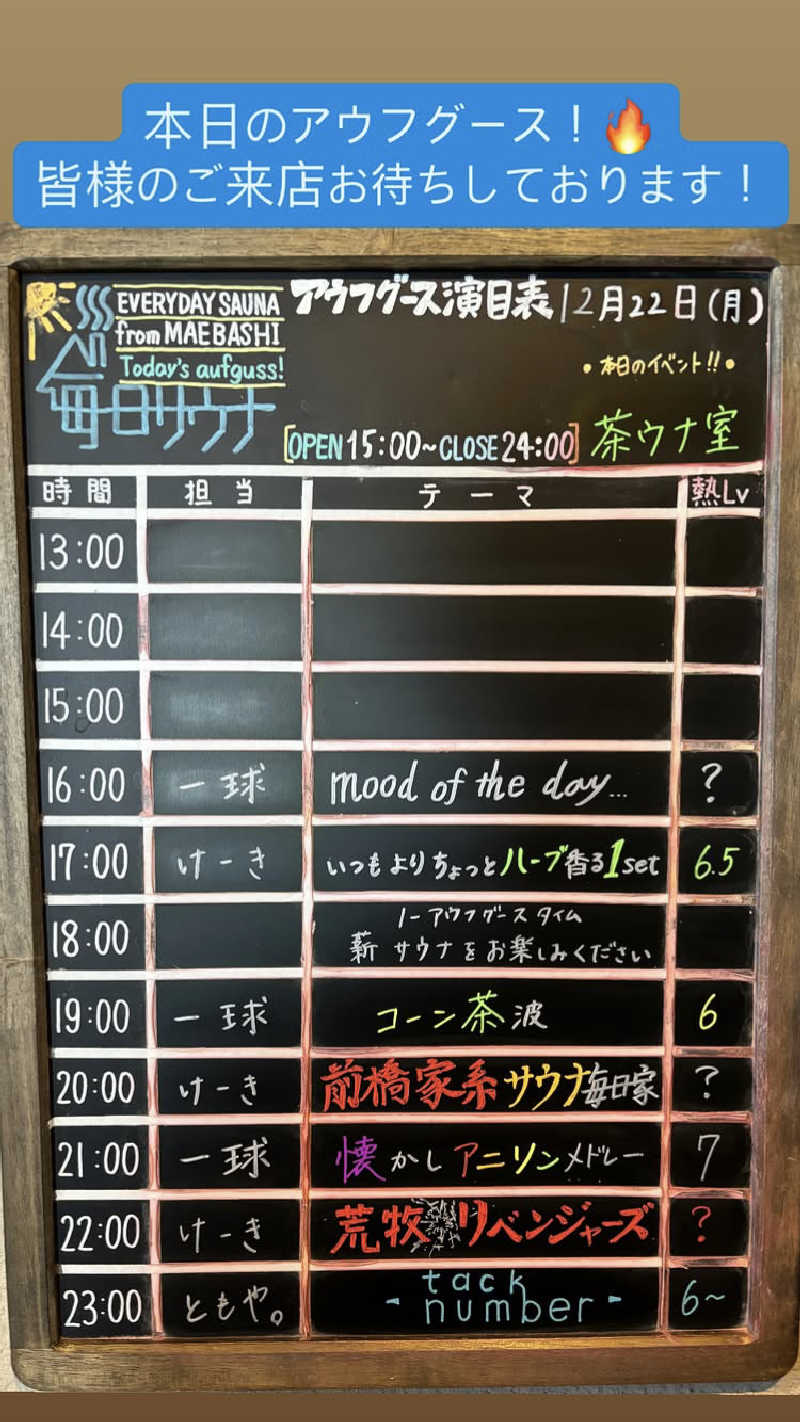 本日のアウフグース！🔥
皆様のご来店お待ちしております！
EVERYDAY SAUNA
from MAEBASHI
Today's aufguss!
毎日サウナ
アウフグース演目表 12月22日(月)
・本日のイベント!!・
[OPEN 15:00~CLOSE 24:00] 茶ウナ室
時間 担当 テーマ 熱Lv
13:00
14:00
15:00
16:00 一球 mood of the day... ?
17:00 けーき いつもよりちょっとハーブ香る1set 6.5
18:00 ノーアウフグースタイム
薪サウナをお楽しみください
19:00 一球 コーン茶波 6
20:00 けーき 前橋家系サウナ毎日家 ?
21:00 一球 懐かしアニソンメドレー 7
22:00 けーき 荒牧リベンジャーズ ?
23:00 ともや。 - tack
number - 6~